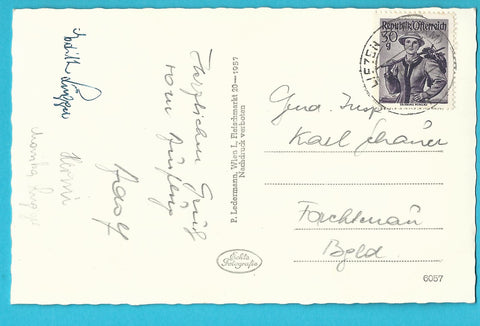 Herzlichen Gruß
vom Ausflug
Adolf
P. Ledermann, Wien I., Fleischmarkt 20 — 1957
Nachdruck verboten
Echte
Fotografie
Republik Österreich
30
g
LIEZEN
Gend. Insp.
Karl Schauer
Forchtenau
Bgld.
6057